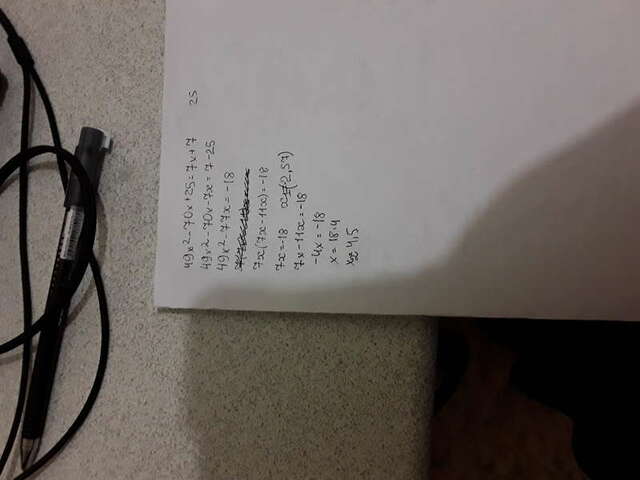 49x²-70x+25=7x+7 25
49x²-70x-7x=7-25
49x²-77x=-18
7x(7x-11x)=-18
7x=-18 x=(2,57)
7x-11x=-18
-4x=-18
x=18:4
x=4,5